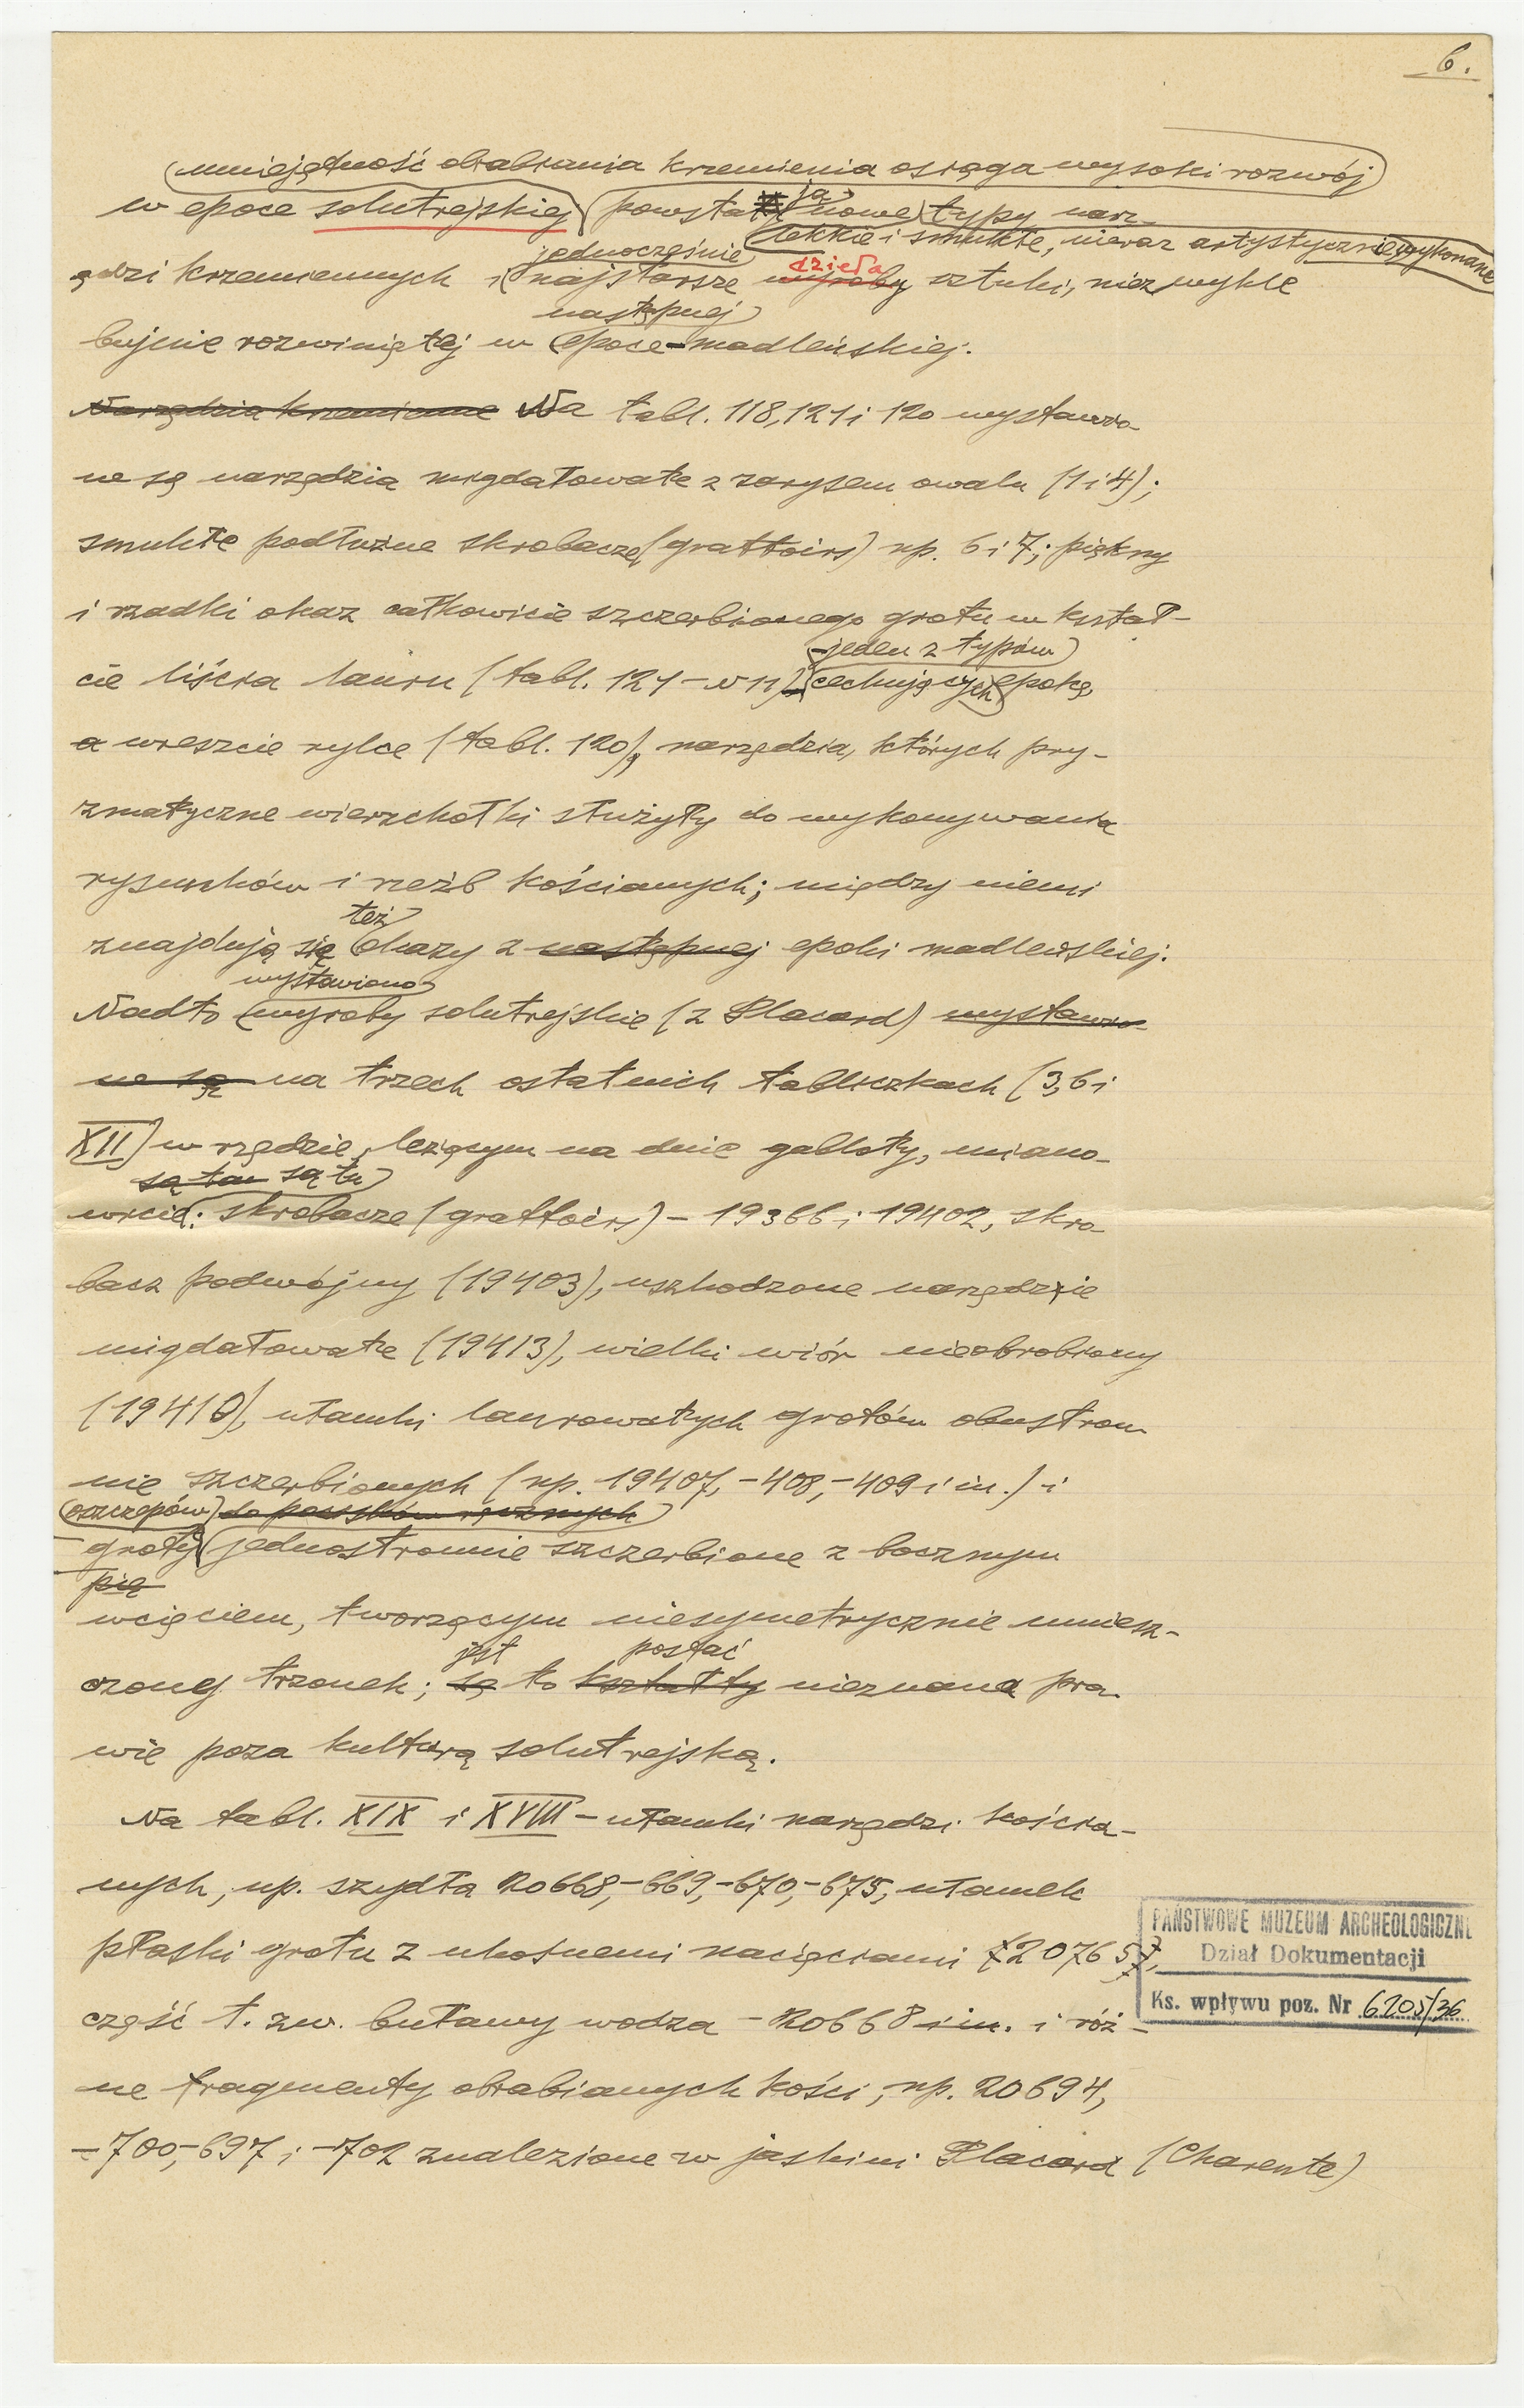 6.
umiejętność obrabiania krzemienia osiąga wysoki rozwój
w epoce solutrejskiej powstają nowe typy narz-
lekkie i smukłe, nieraz artystycznie wykonane
jednocześnie dzieła
ędzi krzemiennych i najstarsze wyroby sztuki, niezwykle
następnej
bujnie rozwiniętej w epoce madleńskiej.
Narzędzia krzemienne Na tabl. 118, 121 i 120 wystawio-
ne są narzędzia migdałowate z zarysem owalu (1 i 4);
smukłe podłużne skrobacze (grattoirs) np. 6 i 7; piękny
i rzadki okaz całkowicie szczerbionego grotu w kształ-
jeden z typów
cie liścia lauru (tabl. 121 – N 11) cechujących epokę,
a wreszcie rylce (tabl. 120), narzędzia, których pry-
zmatyczne wierzchołki służyły do wykonywania
rysunków i rzeźb kościanych; między niemi
też
znajdują się okazy z następnej epoki madleńskiej.
wystawiono
Nadto wyroby solutrejskie (z Placard) wystawio-
ne są na trzech ostatnich tabliczkach (3, 6 i
XII) w rzędzie, leżącym na dnie gabloty, miano-
są tam są tu
wicie: skrobacze (grattoirs) – 19366 i 19402, skro
bacz podwójny (19403), uszkodzone narzędzie
migdałowate (19413), wielki wiór nieobrobiony
(19410), ułamki laurowatych grotów obustron
nie szczerbionych (np. 19407, -408, -409 i in.) i
oszczepów do pocisków ręcznych
groty jednostronnie szczerbione z bocznym
pię
wcięciem, tworzącym niesymetrycznie umiesz-
jest postać
czony trzonek; są to kształty nieznana pra-
wie poza kulturą solutrejską.
Na tabl. XIX i XVIII – ułamki narzędzi kościa-
nych, np. szydła 20668, -669, -670, -675, ułamek
płaski grotu z ukośnemi nacięciami 20765,
część t. zw. buławy wodza – 20668 i in. i róż-
ne fragmenty obrabianych kości, np. 20694,
-700, -697 i -702 znalezione w jaskini Placard (Charente)
PAŃSTWOWE MUZEUM ARCHEOLOGICZNE
Dział Dokumentacji
Ks. wpływu poz. Nr 6205/36